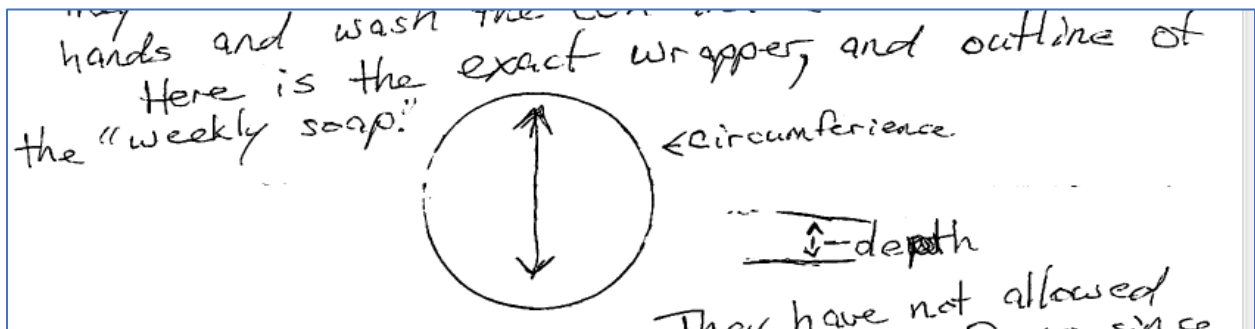 hands and wash the
Here is the exact wrapper, and outline of
the "weekly soap."
<circumferience.
-depth
They have not allowed
since